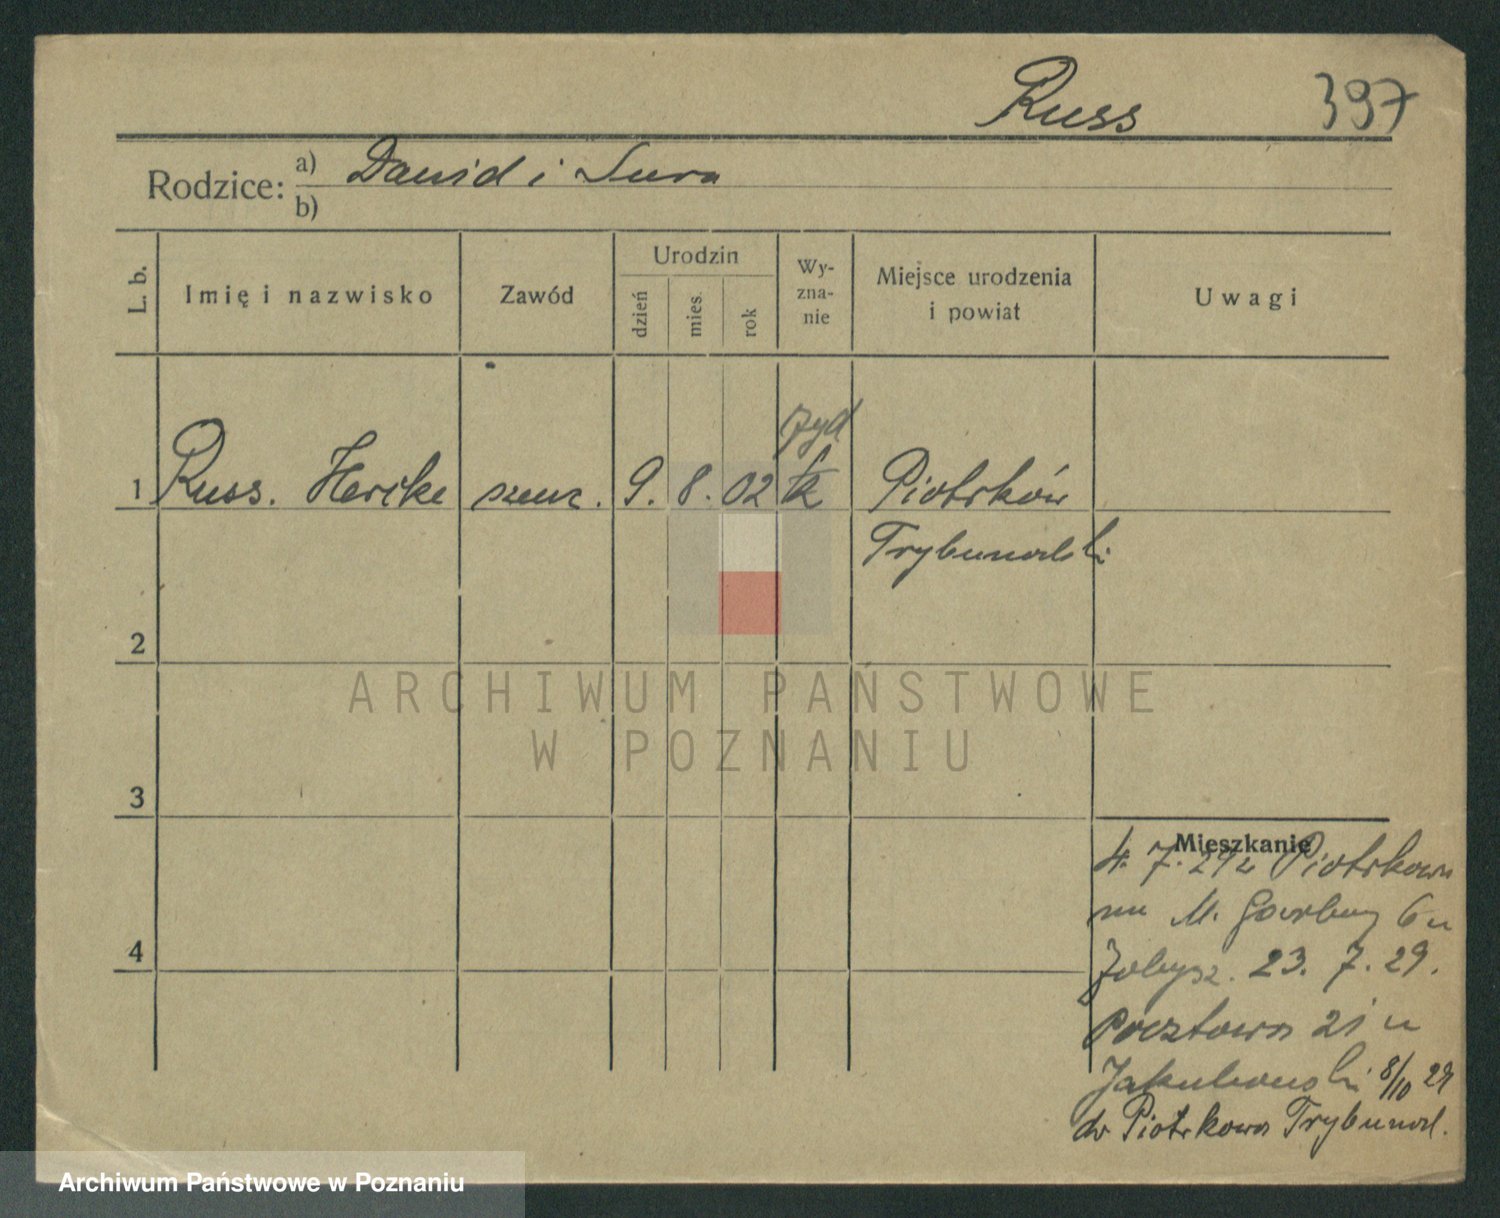 Russ 397
Rodzice: a) Dawid i Sura
b)
L. b. Imię i nazwisko Zawód Urodzin dzień mies. rok Wy-zna-nie Miejsce urodzenia i powiat Uwagi
żyd
1 Russ. Hercke szewc. 9. 8. 02 Piotrków
Trybunalski
2
ARCHIWUM PAŃSTWOWE
W POZNANIU
3
Mieszkanie
4. 7. 29 z Piotrkowa
na M. Garbary 6 u
23. 7. 29.
4
Pocztowa 21 u
Jakubowski 8/10 29
do Piotrkowa Trybunal.
Archiwum Państwowe w Poznaniu